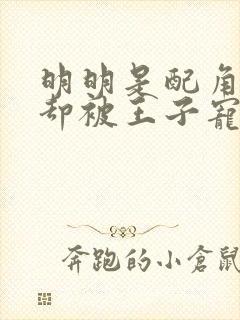 明明是配角
却被王子寵
奔跑的小倉鼠